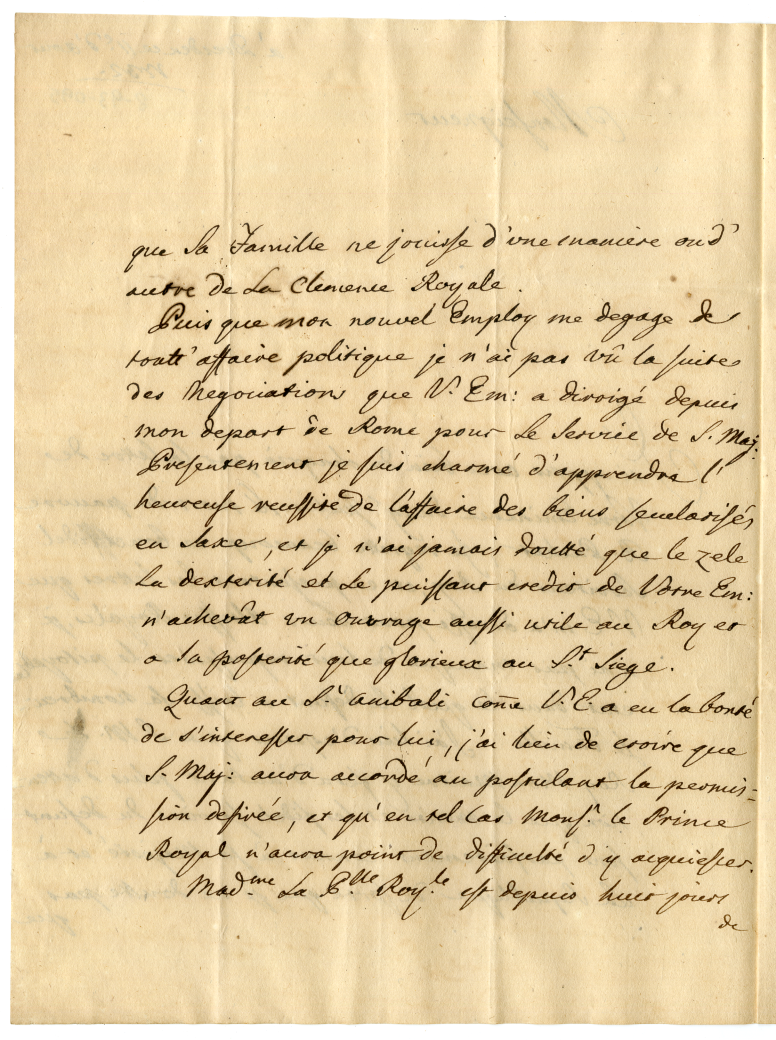 que sa Famille ne jouisse d'vne maniere ou d'
autre de La Clemence Royale.
Puis que mon nouvel Employ me degage de
toutt' affaire politique je n'ai pas vû la suite
des Negociations que V. Em: a dirigé depuis
mon depart de Rome pour Le Service de S. Maj:
Presentement je suis charmé d'apprendre l'
heureuse reussite de l'affaire des biens secularisés
en Saxe, et je n'ai jamais doutté que le zele
La dexterité et Le puissant credit de Votre Em:
n'achevât un ouvrage aussi utile au Roy et
a sa posterité que glorieux au S.t Siege.
Quant au S.r Anibali come V. E. a eu la bonté
de s'interesser pour lui, j'ai lieu de croire que
S. Maj: aura accordé au postulant la permis-
sion desirée, et qu'en tel Cas Mons.r le Prince
Royal n'aura point de difficulté d'y acquiesser.
Mad.me La P.sse Roy.le est depuis huit jours
de